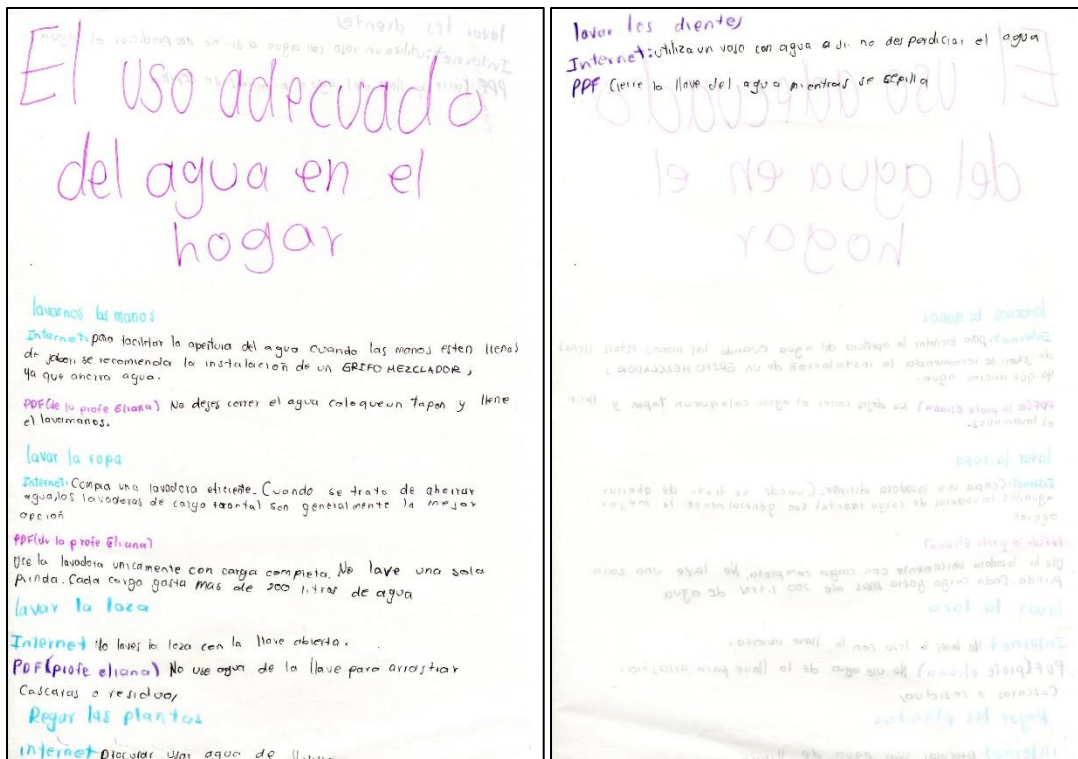 El uso adecuado
del agua en el
hogar
lavarnos las manos
Internet: para facilitar la apertura del agua cuando las manos esten llenas
de jabon se recomienda la instalación de un GRIFO MEZCLADOR,
ya que ahorra agua.
PDF(de la profe Eliana) No dejes correr el agua coloque un tapon y llene
el lavamanos.
lavar la ropa
Internet: Compra una lavadora eficiente. Cuando se trata de ahorrar
agua, las lavadoras de carga frontal son generalmente la mejor
opción
PDF(de la profe Eliana)
Use la lavadora unicamente con carga completa. No lave una sola
prenda. Cada carga gasta mas de 200 litros de agua
lavar la loza
Internet No laves la loza con la llave abierta.
PDF(profe eliana) No use agua de la llave para arrastrar
Cascaras o residuo,
Regar las plantas
internet usar agua de
lavar los dientes
Internet: utiliza un vaso con agua asi no desperdiciar el agua
PDF Cierre la llave del agua mientras se cepilla